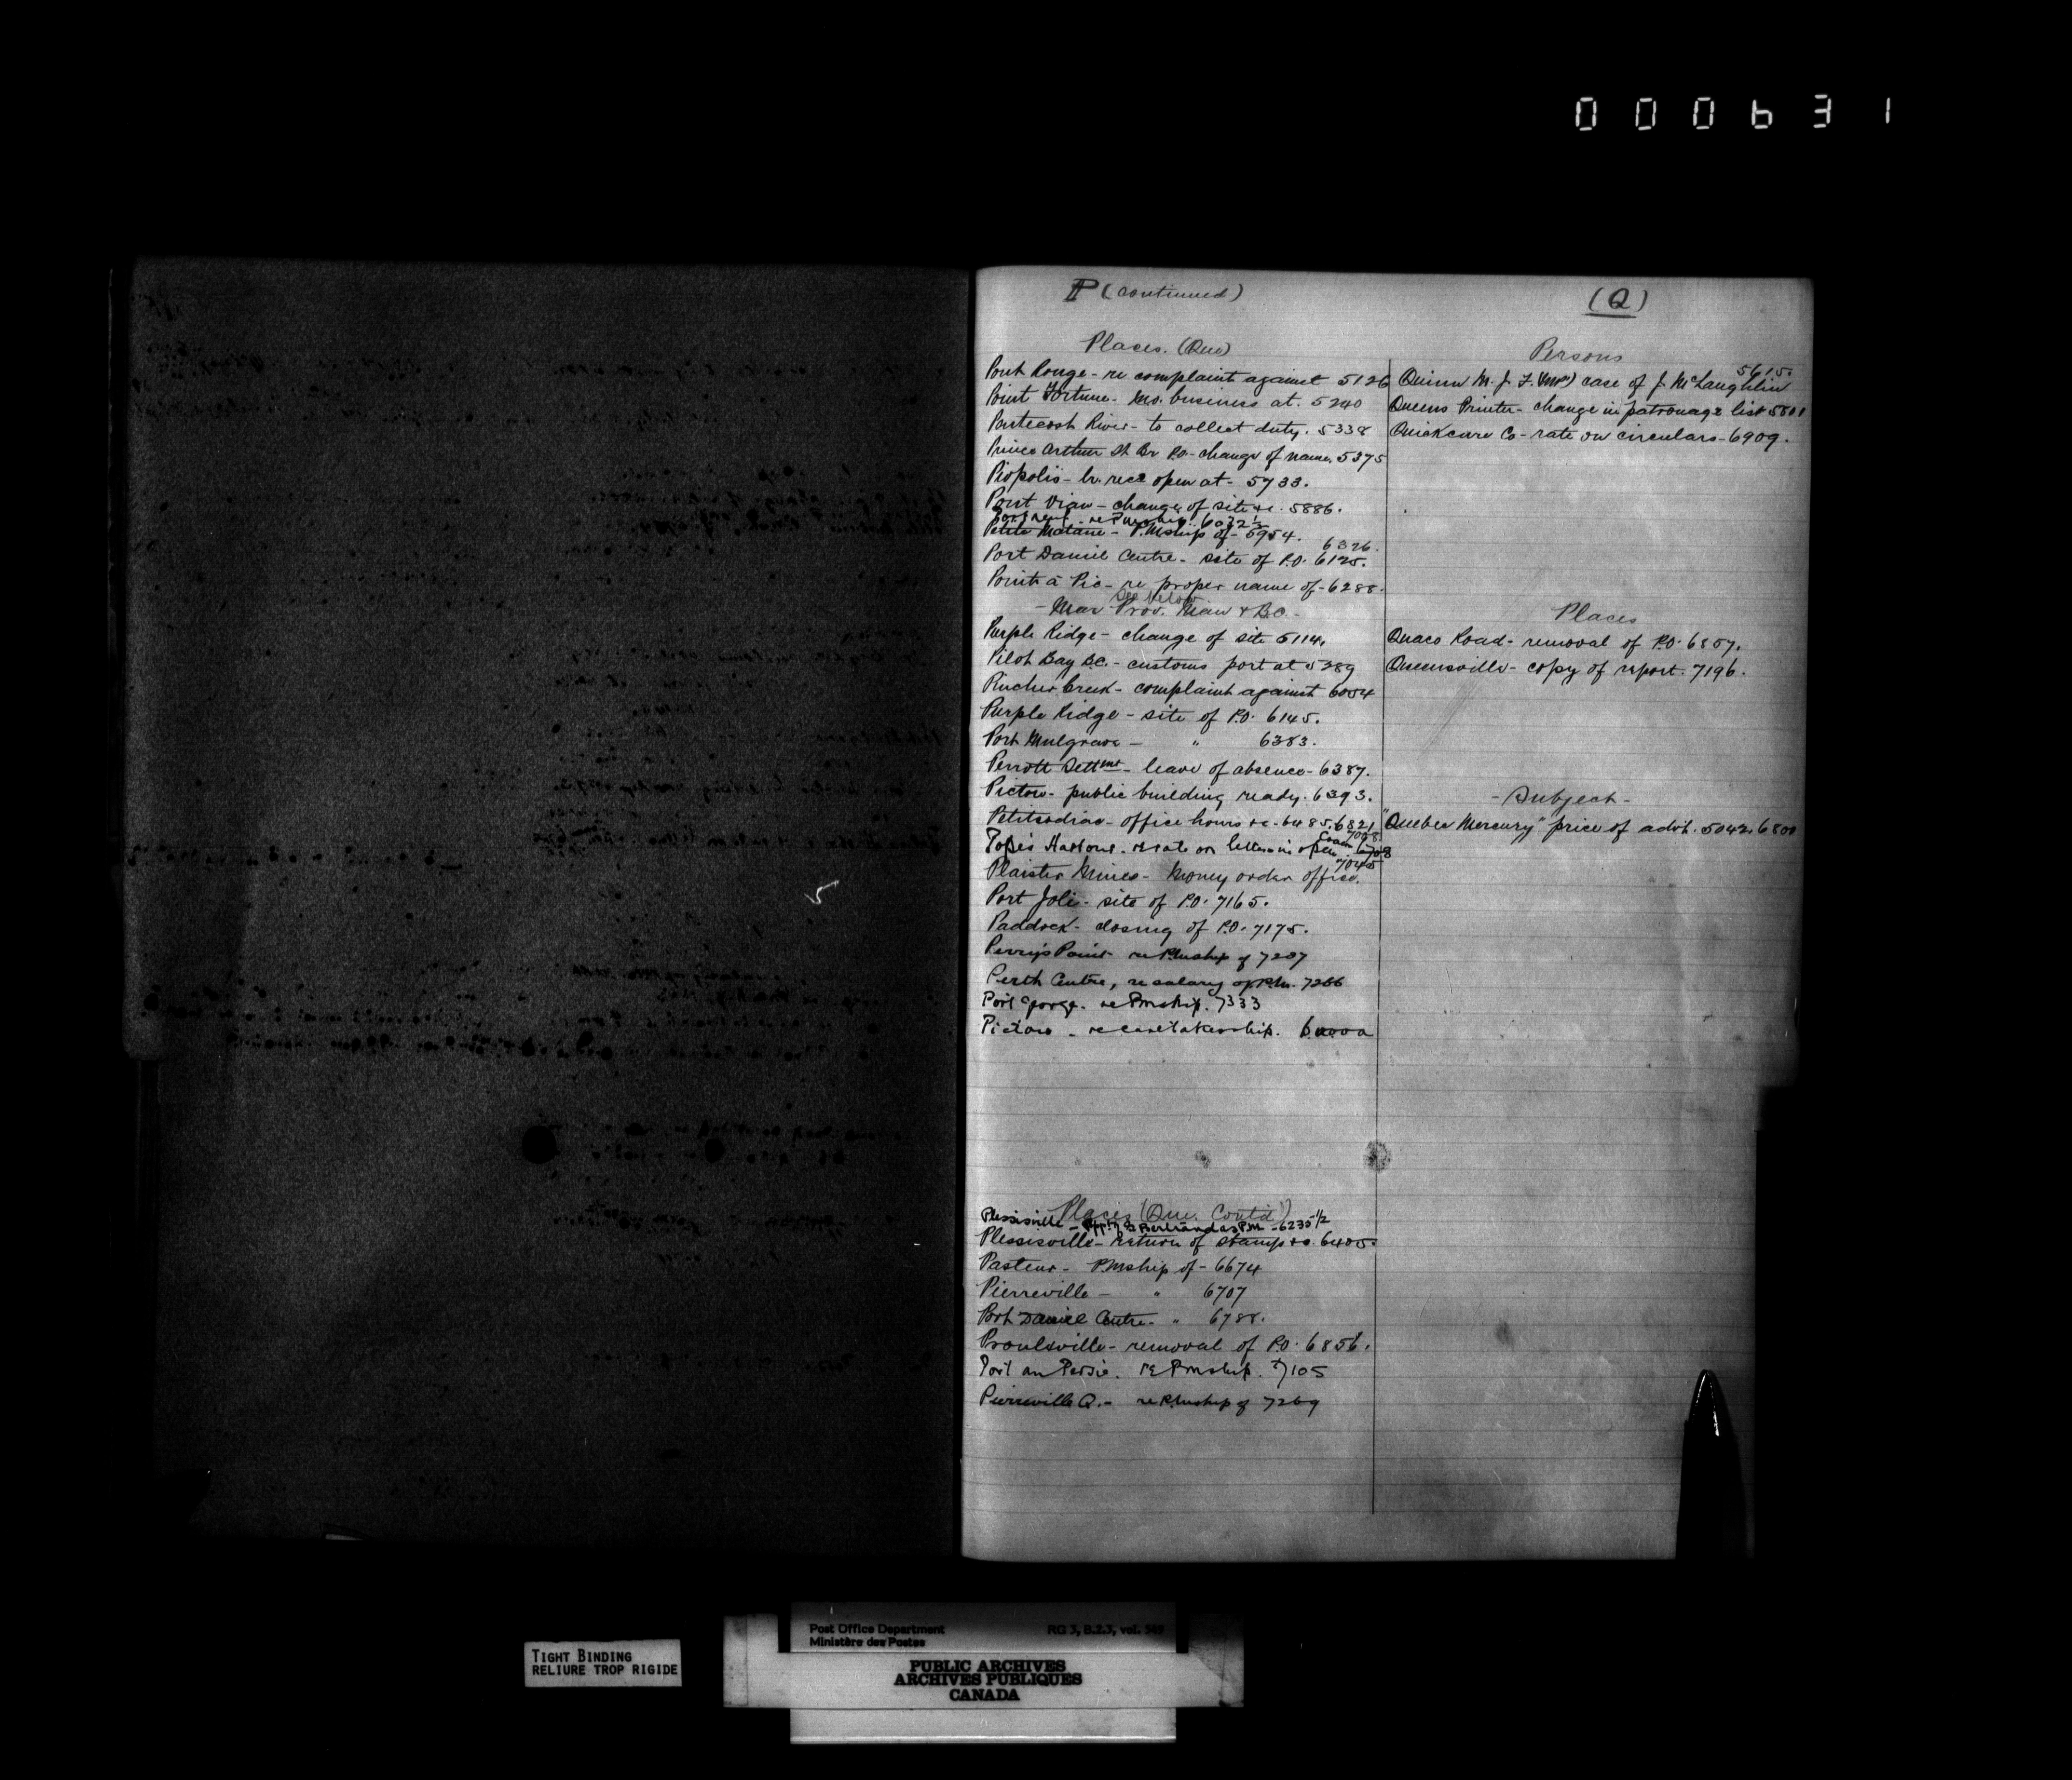 000631
P (continued)
Places. (Que)
Pont Rouge - re complaint against 5126
Point Fortune - M.O. business at. 5240
Pentecost River - to collect duty. 5338
Prince Arthur St Br P.O. - change of name. 5375
Piopolis - open at - 5733.
Pont Viau - change of site &c. 5886.
re Pmship. 6032½
Petite Matane - P.Mship of - 5954.
6326.
Port Daniel Centre - site of P.O. 6125.
Pointe à Pic - re proper name of - 6288.
See below
- Mar Prov. Man & B.C. -
Purple Ridge - change of site 5114.
Pilot Bay B.C. - customs port at 5289
Pincher Creek - complaint against 6054
Purple Ridge - site of P.O. 6145.
Port Mulgrave - " 6383.
Perrott Settmt - leave of absence - 6387.
Pictou - public building ready. 6393.
Petitcodiac - office hours &c - 6485. 6821
Pope's Harbour - re rate on letters in
Plaister Mines - Money order office. 7045
Port Joli - site of P.O. 7165.
Paddock - closing of P.O. 7175.
Perry's Point - re P.Mship of 7237
Perth Centre, re salary of P.M. 7266
Port George - re Pmship. 7333
Pictou - re caretakership.
Places (Que. Contd)
Plessisville - Appt of Bertrand as P.M. - 6235½
Plessisville - return of stamps &c. 6405.
Pasteur - P.Mship of - 6674
Pierreville - " 6707
Port Daniel Centre - " 6788.
Proulxville - removal of P.O. 6856.
Port au Persil. re Pmship. 7105
Pierreville Q. - re P.Mship of 7269
(Q)
Persons
5615.
Quinn M. J. F. (Mr) case of J. McLaughlin
Queens Printer - change in patronage list 5801
Quickcure Co - rate on circulars - 6909.
Places
Quaco Road - removal of P.O. 6857.
Queensville - copy of report. 7196.
- Subject -
"Quebec Mercury" price of advt. 5042. 6800
TIGHT BINDING
RELIURE TROP RIGIDE
Post Office Department RG 3, B.2.3, vol. 549
Ministère des Postes
PUBLIC ARCHIVES
ARCHIVES PUBLIQUES
CANADA